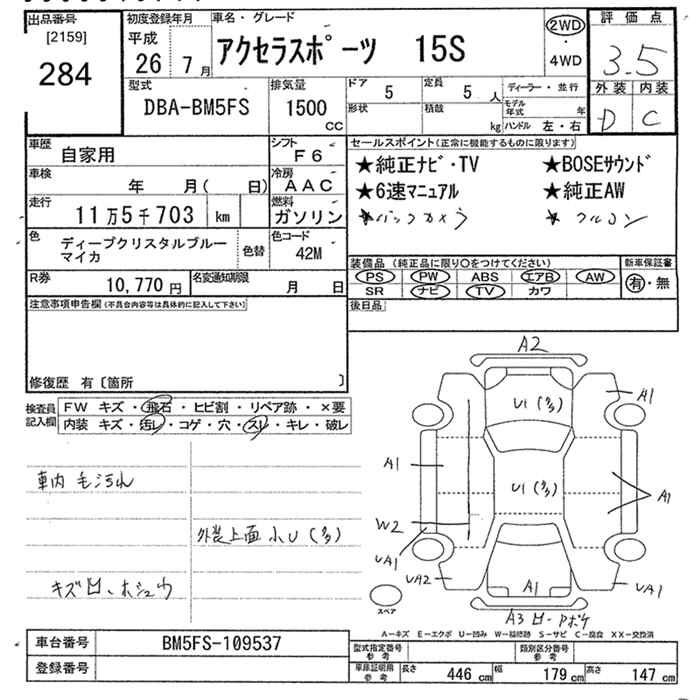 出品番号
[2159]
284
初度登録年月
平成
26 7月
車名・グレード
アクセラスポーツ 15S
2WD
・
4WD
評価点
3.5
外装 内装
D C
型式
DBA-BM5FS
排気量
1500
CC
ドア 5
定員 5人
ディーラー・並行
形状
積載
kg
モデル年式 年
ハンドル 左・右
車歴
自家用
シフト
F6
車検
年 月( 日)
冷房
AAC
走行
11万5千703 km
燃料
ガソリン
色
ディープクリスタルブルー
マイカ
色替
色コード
42M
R券
10,770円
名変通知期限
月 日
セールスポイント(正常に機能するものに限ります)
★純正ナビ・TV ★BOSEサウンド
★6速マニュアル ★純正AW
★バックカメラ ★フルコン
装備品 (純正品に限り○をつけてください)
PS PW ABS エアB AW
SR ナビ TV カワ
新車保証書
有・無
後日品
注意事項申告欄(不具合内容等は具体的に記入して下さい)
修復歴 有〔箇所 〕
検査員
記入欄
FW キズ・飛石・ヒビ割・リペア跡・×要
内装 キズ・汚レ・コゲ・穴・スリ・キレ・破レ
車内 毛 汚れ
外装上面 小U(多)
キズ凹、ホシュウ
A2
A1
U1(多)
A1
U1(多)
A1
W2
UA1
UA2
A1
UA1
スペア
A3 凹
A－キズ E－エクボ U－凹み W－補修跡 S－サビ C－腐食 XX－交換済
車台番号
BM5FS-109537
登録番号
型式指定番号
参考
類別区分番号
参考
車庫証明用
参考
長さ 446 cm
幅 179 cm
高さ 147 cm